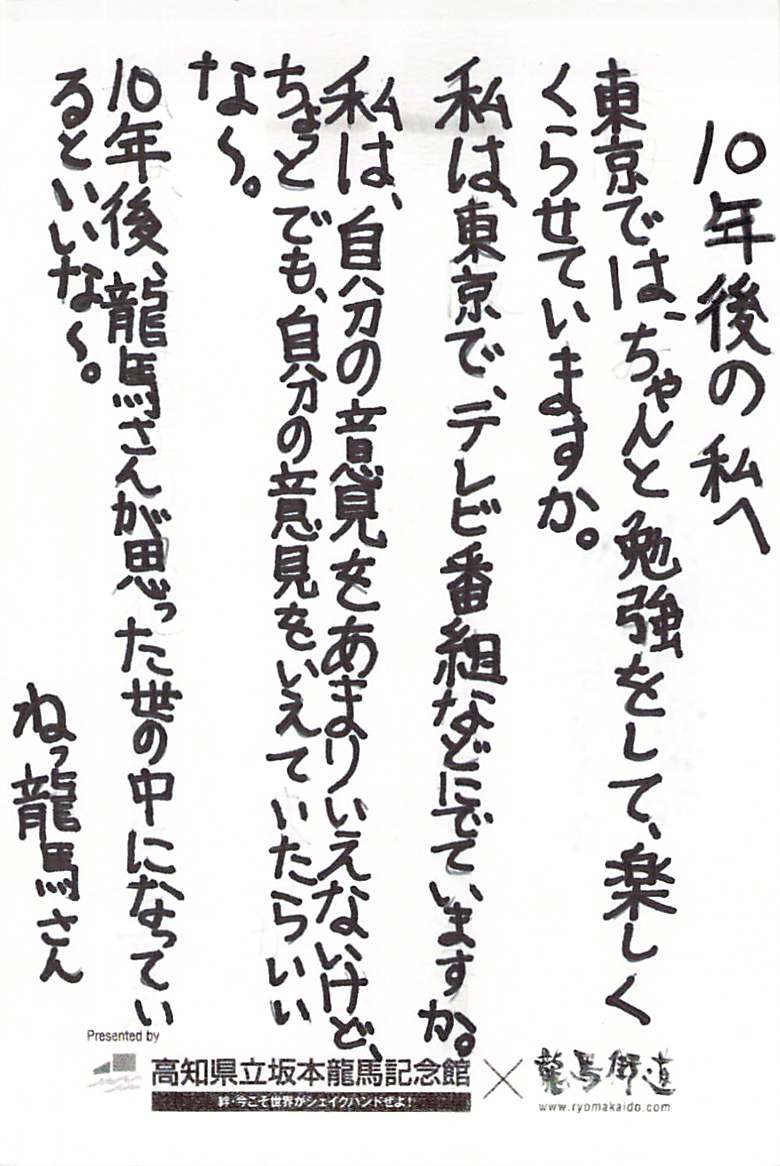 10年後の私へ
東京では、ちゃんと勉強をして、楽しく
くらせていますか。
私は、東京で、テレビ番組などにでていますか。
私は、自分の意見をあまりいえないけど、
ちょっとでも、自分の意見をいえていたらいい
な〜。
10年後、龍馬さんが思った世の中になってい
るといいな〜。
ねっ龍馬さん
Presented by
高知県立坂本龍馬記念館
絆・今こそ世界がシェイクハンドぜよ!
×
龍馬街道
www.ryomakaido.com